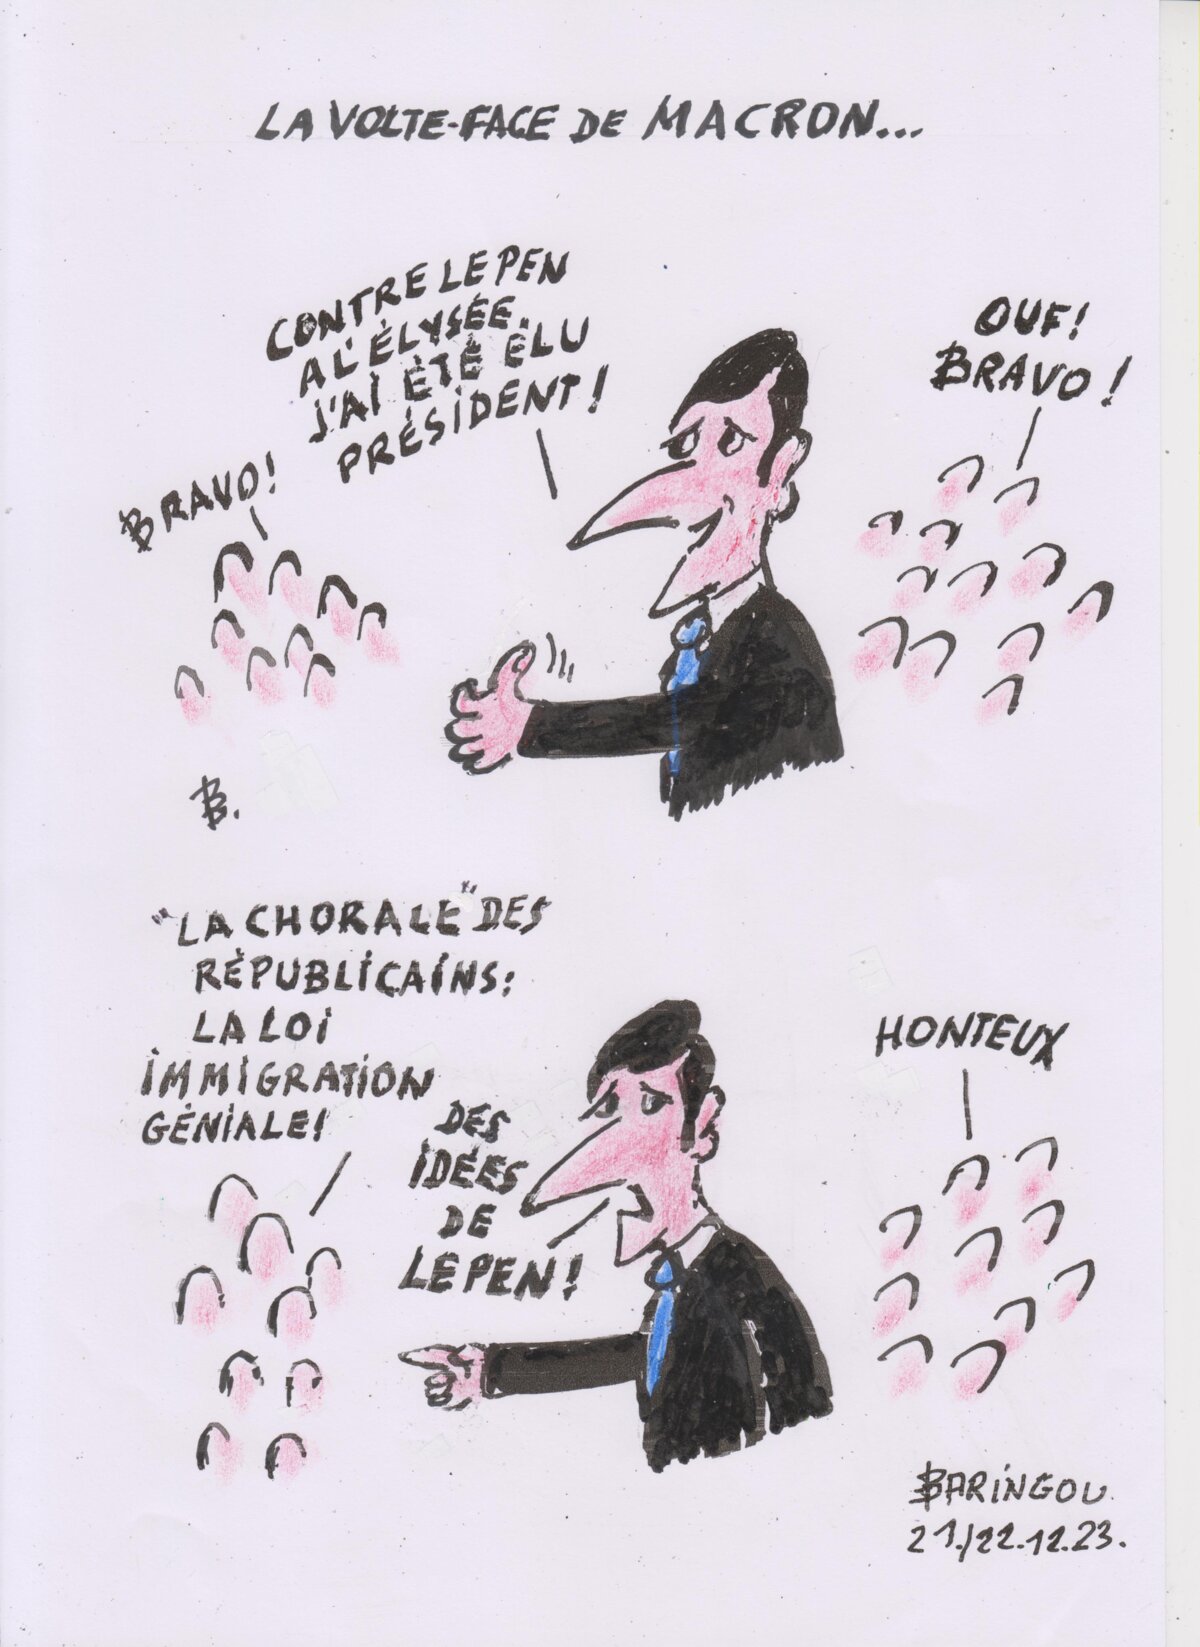 LA VOLTE-FACE DE MACRON...
CONTRE LE PEN
A L'ÉLYSÉE.
J'AI ÉTÉ ÉLU
PRÉSIDENT!
BRAVO!
OUF!
BRAVO!
B.
"LA CHORALE" DES
RÉPUBLICAINS:
LA LOI
IMMIGRATION
GÉNIALE!
DES
IDÉES
DE
LE PEN!
HONTEUX
BARINGOU.
21./22.12.23.